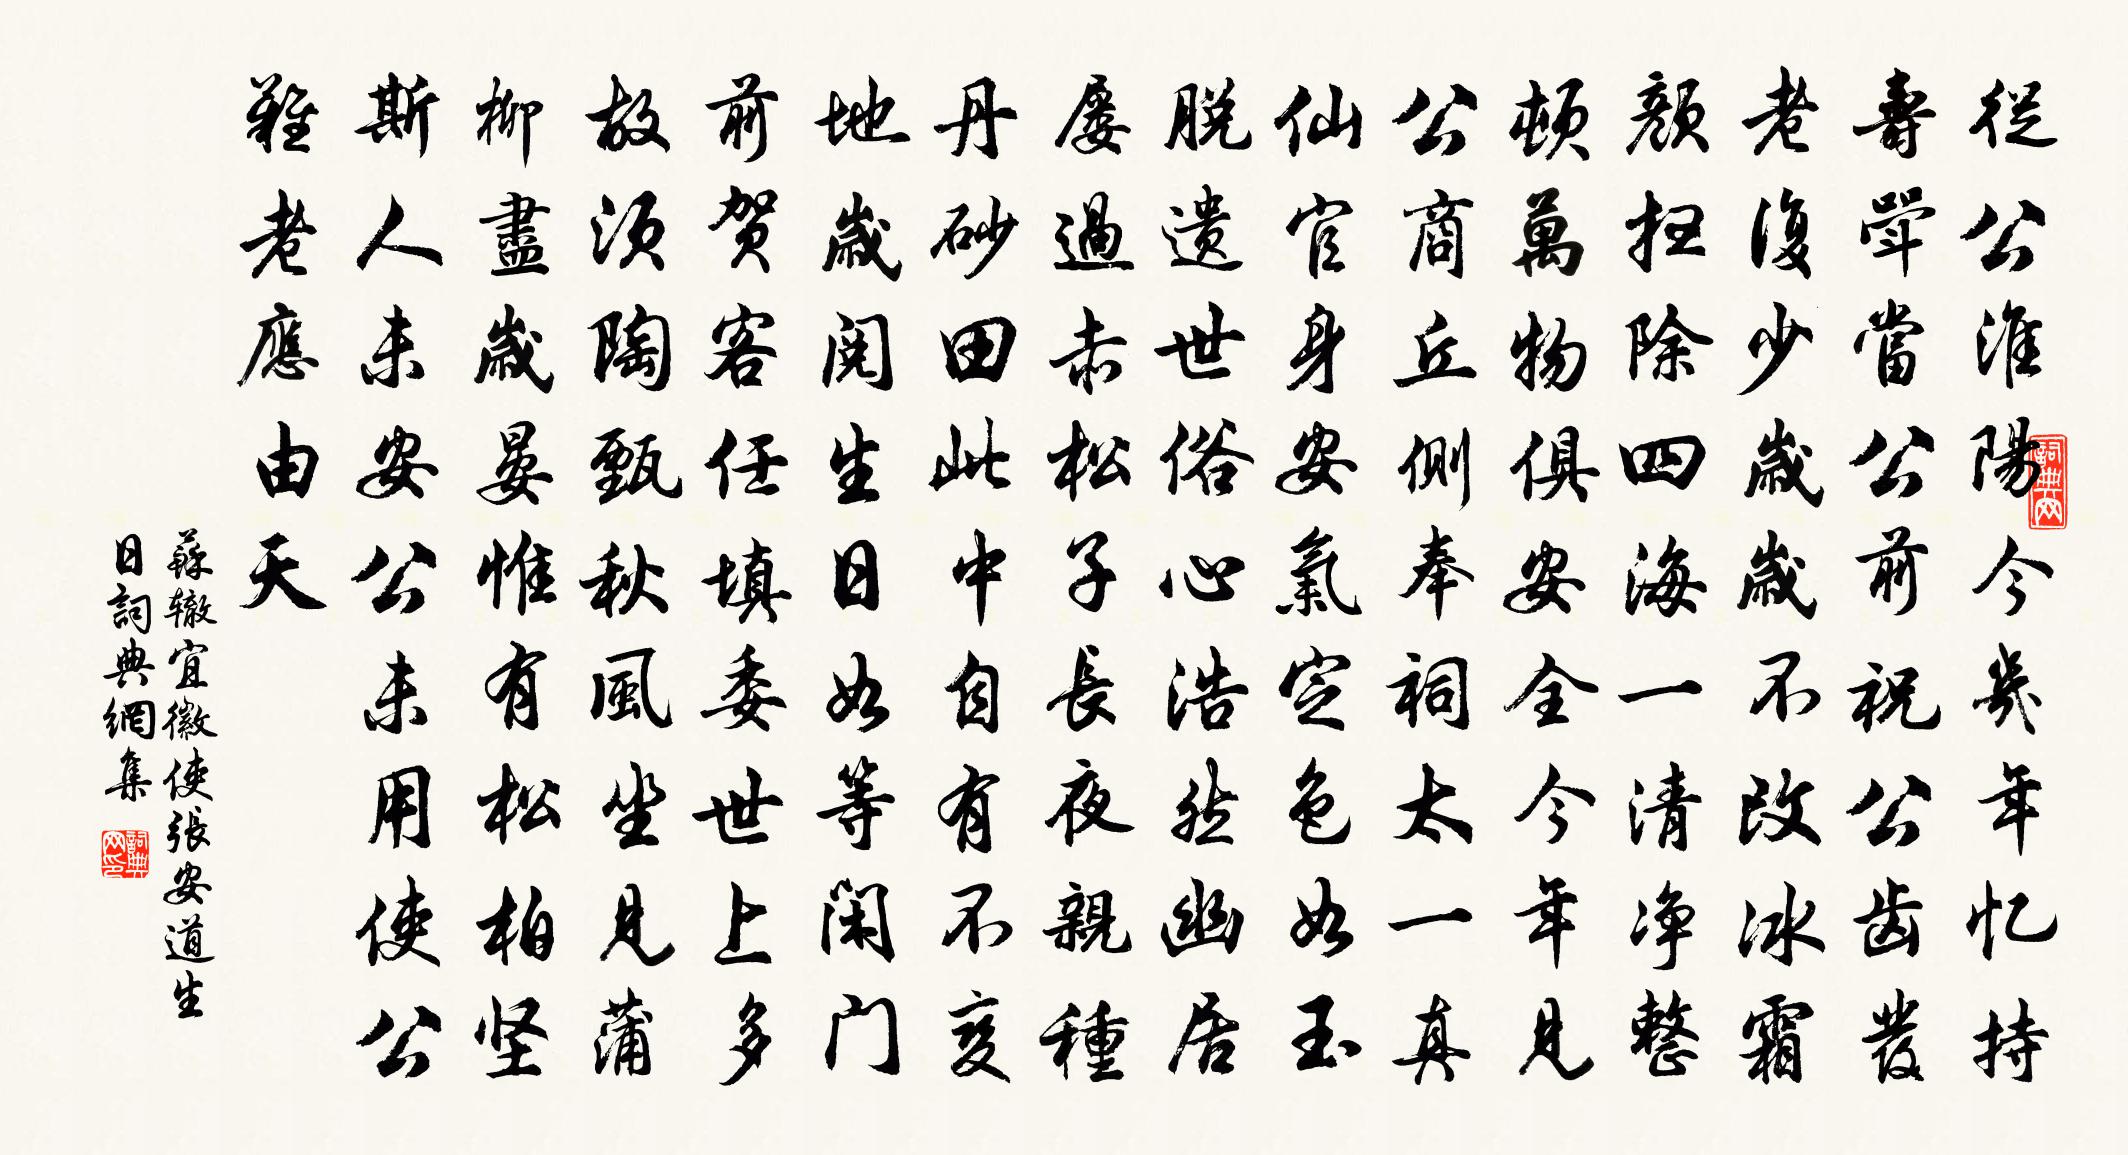 從公淮陽今幾年忆持
壽斝當公前祝公齿發
老復少歲歲不改冰霜
顏扫除四海一清净整
頓萬物俱安全今年見
公商丘側奉祠太一真
仙官身安氣定色如玉
脱遗世俗心浩然幽居
屡過赤松子長夜親種
丹砂田此中自有不变
地歲閲生日如等闲门
前贺客任填委世上多
故须陶甄秋風坐見蒲
柳盡歲晏惟有松柏坚
斯人未安公未用使公
難老應由天
蘇辙宜徽使張安道生
日詞典網集
詞典网
詞典网印